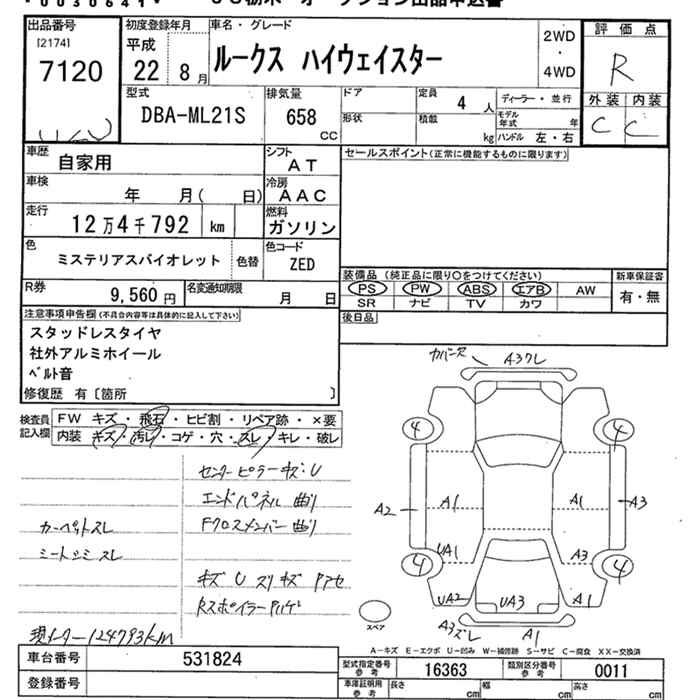 0030641
出品番号
[2174]
7120
初度登録年月
平成
22 8月
車名・グレード
ルークス ハイウェイスター
2WD
・
4WD
評価点
R
外装 内装
C C
型式
DBA-ML21S
排気量
658
CC
ドア
定員
4 人
ディーラー・並行
形状
積載
kg
モデル年式
年
ハンドル 左・右
車歴
自家用
シフト
AT
セールスポイント(正常に機能するものに限ります)
車検
年 月( 日)
冷房
AAC
走行
12万4千792 km
燃料
ガソリン
色
ミステリアスバイオレット
色替
色コード
ZED
R券
9,560円
名変通知期限
月 日
装備品 (純正品に限り○をつけてください)
PS PW ABS エアB AW
SR ナビ TV カワ
新車保証書
有・無
後日品
注意事項申告欄(不具合内容等は具体的に記入して下さい)
スタッドレスタイヤ
社外アルミホイール
ベルト音
修復歴 有〔箇所 〕
検査員記入欄
FW キズ・飛石・ヒビ割・リペア跡・×要
内装 キズ・汚レ・コゲ・穴・スレ・キレ・破レ
センターピラーキズ:U
エンドパネル曲り
カーペットスレ
Fクロスメンバー曲り
シートシミスレ
キズ U スリキズ アセ
Rスポイラーハゲ
現メーター124793km
カバースレ
A3クレ
4
4
A2
A1
A1
A3
UA1
A3
4
4
UA2
UA3
A1
A3ズレ
A1
スペア
A-キズ E-エクボ U-凹み W-補修跡 S-サビ C-腐食 XX-交換済
車台番号
531824
型式指定番号
参考
16363
類別区分番号
参考
0011
登録番号
車庫証明用
参考
長さ
cm
幅
cm
高さ
cm